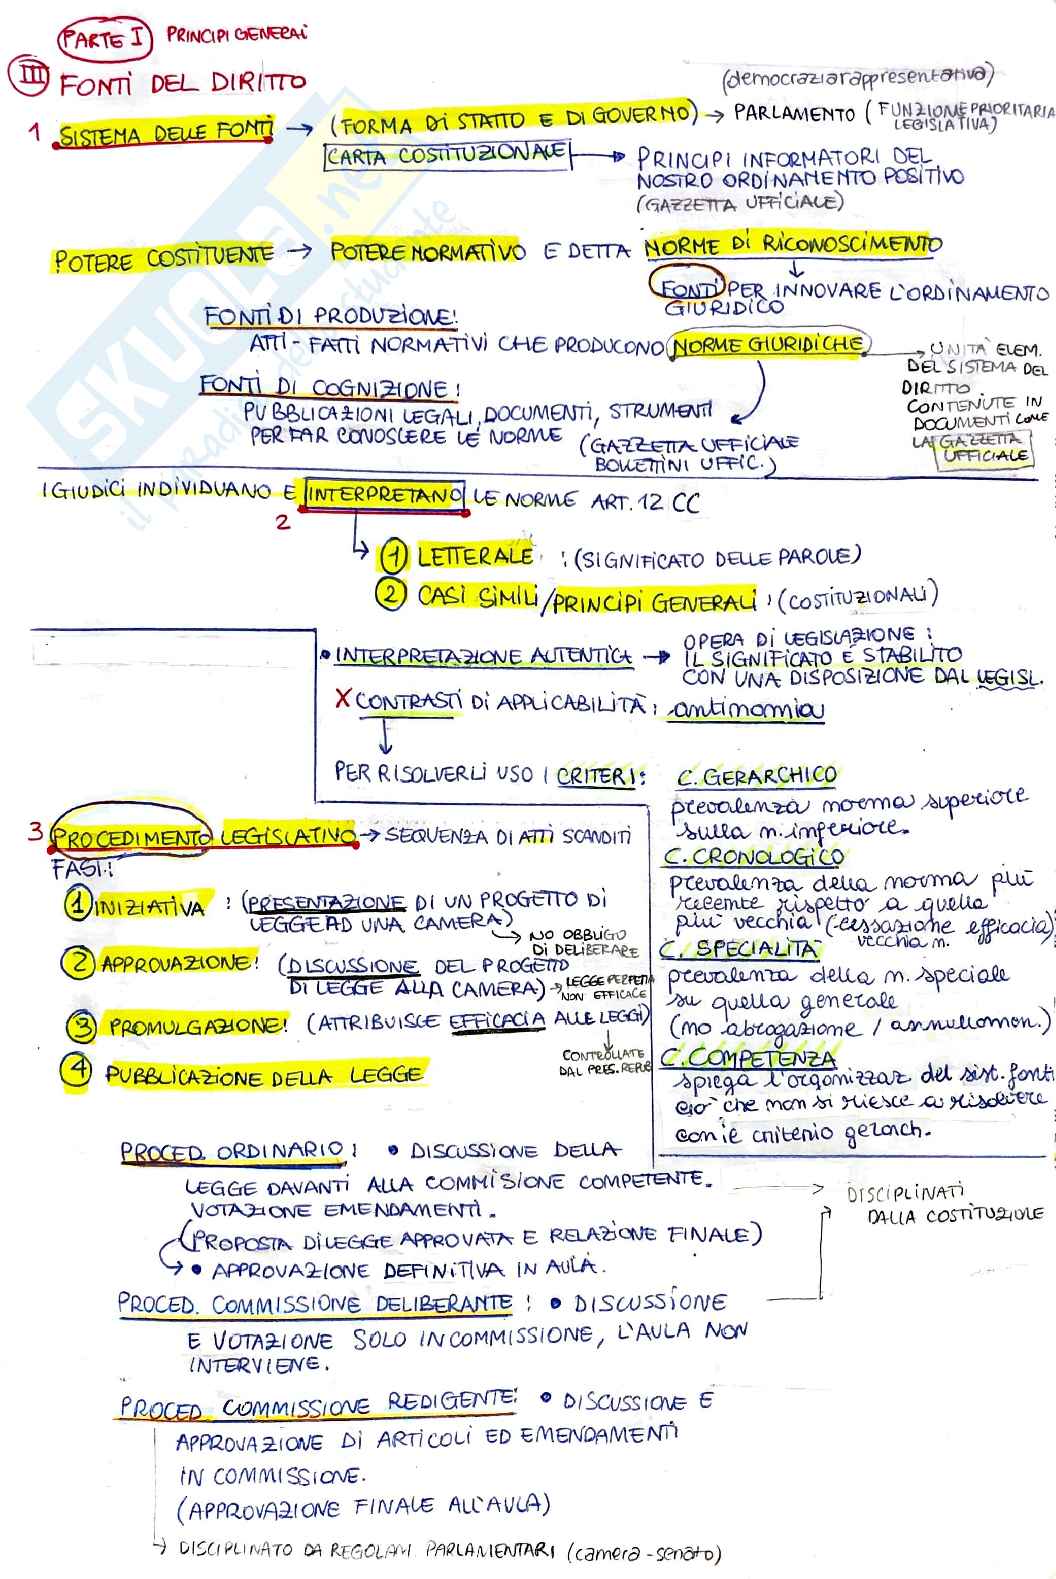 PARTE I PRINCIPI GENERALI
III FONTI DEL DIRITTO
(democrazia rappresentativa)
1 SISTEMA DELLE FONTI → (FORMA DI STATTO E DI GOVERNO) → PARLAMENTO (FUNZIONE PRIORITARIA
LEGISLATIVA)
CARTA COSTITUZIONALE → PRINCIPI INFORMATORI DEL
NOSTRO ORDINAMENTO POSITIVO
(GAZZETTA UFFICIALE)
POTERE COSTITUENTE → POTERE NORMATIVO E DETTA NORME DI RICONOSCIMENTO
FONTI PER INNOVARE L'ORDINAMENTO
GIURIDICO
FONTI DI PRODUZIONE:
ATTI - FATTI NORMATIVI CHE PRODUCONO NORME GIURIDICHE → UNITA' ELEM.
DEL SISTEMA DEL
DIRITTO.
CONTENUTE IN
DOCUMENTI COME
LA GAZZETTA
UFFICIALE
FONTI DI COGNIZIONE:
PUBBLICAZIONI LEGALI, DOCUMENTI, STRUMENTI
PER FAR CONOSCERE LE NORME (GAZZETTA UFFICIALE
BOLLETTINI UFFIC.)
I GIUDICI INDIVIDUANO E INTERPRETANO LE NORME ART. 12 CC
2
1 LETTERALE : (SIGNIFICATO DELLE PAROLE)
2 CASI SIMILI/PRINCIPI GENERALI : (COSTITUZIONALI)
• INTERPRETAZIONE AUTENTICA → OPERA DI LEGISLAZIONE :
IL SIGNIFICATO È STABILITO
CON UNA DISPOSIZIONE DAL LEGISL.
X CONTRASTI DI APPLICABILITÀ : antinomia
PER RISOLVERLI USO I CRITERI: C. GERARCHICO
prevalenza norma superiore
sulla n. inferiore.
C. CRONOLOGICO
prevalenza della norma più
recente rispetto a quella
più vecchia (-cessazione efficacia)
vecchia n.
C. SPECIALITÀ
prevalenza della n. speciale
su quella generale
(no abrogazione / annullamen.)
C. COMPETENZA
spiega l'organizzaz del sist. fonti
ciò che non si riesce a risolvere
con il criterio gerarch.
3 PROCEDIMENTO LEGISLATIVO → SEQUENZA DI ATTI SCANDITI
FASI:
1 INIZIATIVA : (PRESENTAZIONE DI UN PROGETTO DI
LEGGE AD UNA CAMERA)
→ NO OBBLIGO
DI DELIBERARE
2 APPROVAZIONE! (DISCUSSIONE DEL PROGETTO
DI LEGGE ALLA CAMERA) → LEGGE PERFETTA
NON EFFICACE
3 PROMULGAZIONE! (ATTRIBUISCE EFFICACIA ALLE LEGGI)
CONTROLLATE
DAL PRES. REPUB
4 PUBBLICAZIONE DELLA LEGGE
PROCED. ORDINARIO: • DISCUSSIONE DELLA
LEGGE DAVANTI ALLA COMMISIONE COMPETENTE.
VOTAZIONE EMENDAMENTI.
(PROPOSTA DI LEGGE APPROVATA E RELAZIONE FINALE)
→ • APPROVAZIONE DEFINITIVA IN AULA.
→ DISCIPLINATI
DALLA COSTITUZIOLE
PROCED. COMMISSIONE DELIBERANTE : • DISCUSSIONE
E VOTAZIONE SOLO IN COMMISSIONE, L'AULA NON
INTERVIENE.
PROCED. COMMISSIONE REDIGENTE: • DISCUSSIONE E
APPROVAZIONE DI ARTICOLI ED EMENDAMENTI
IN COMMISSIONE.
(APPROVAZIONE FINALE ALL'AULA)
→ DISCIPLINATO DA REGOLAM PARLAMENTARI (camera - senato)
SKUOLA.net